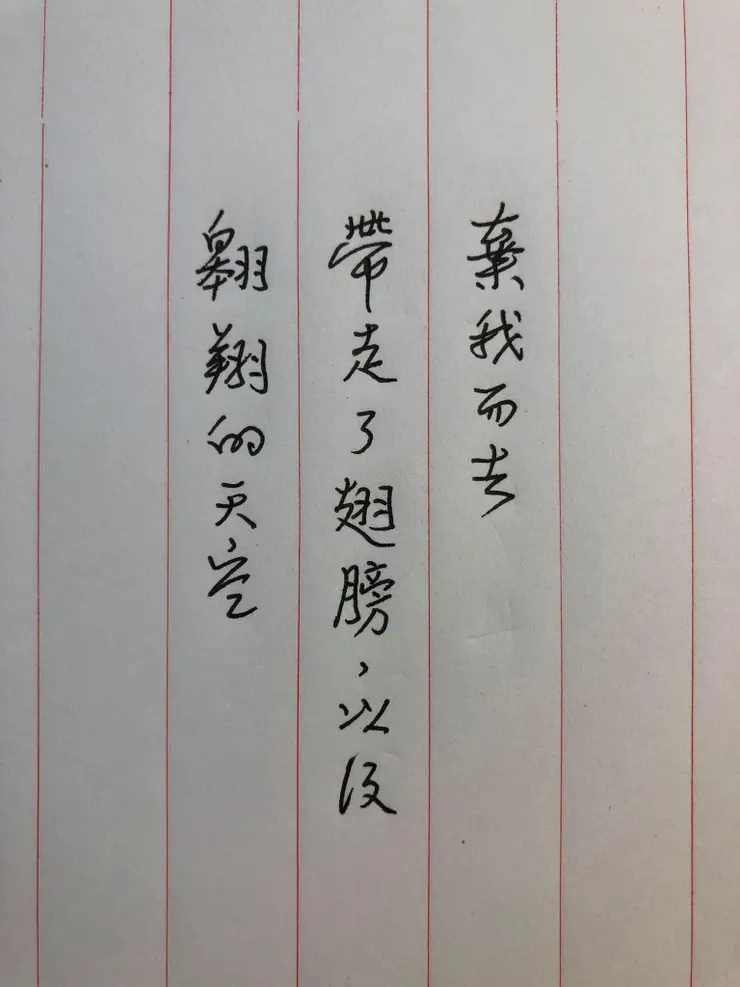 棄我而去
帶走了翅膀，以及
翱翔的天空